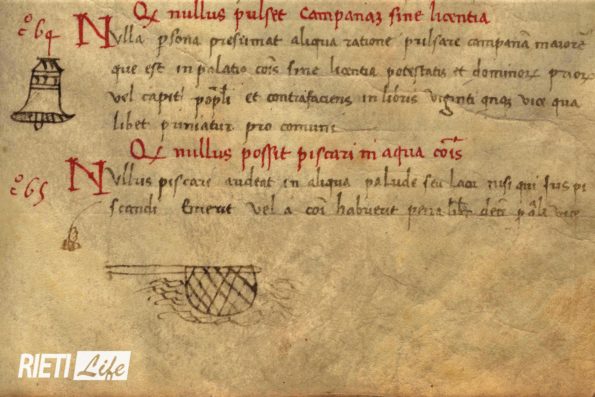 Qꝫ nullus pulset Campanaꝫ sine licentia
c° 64
Nulla psona presumat aliqua ratione pulsare campanā maiorē
que est in palatio cois sine licentia potestatis et dominoꝝ prioꝝ
vel capiti ppli et contrafaciens in libris viginti qnqꝫ vice qua
libet puniatur pro comuni
Qꝫ nullus possit piscari in aqua cois
c° 65
Nullus piscari audeat in aliqua palude seu lacu nisi qui ius pi
scandi Emerit vel a coi habuerit pena
RIETI Life